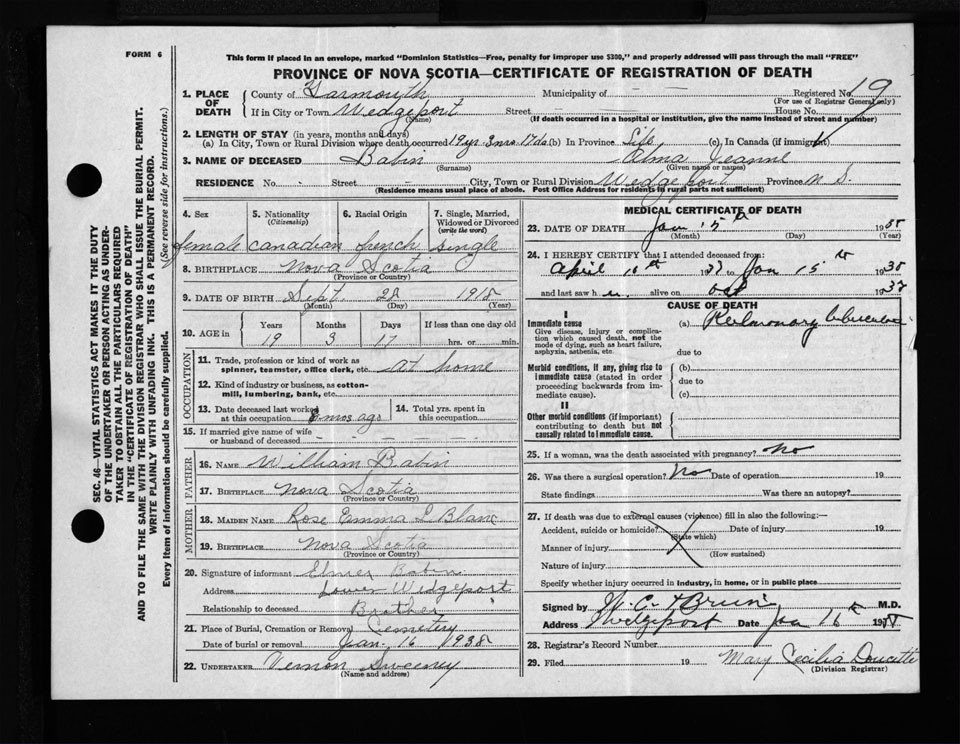 FORM 6
This form if placed in an envelope, marked "Dominion Statistics—Free, penalty for improper use $300," and properly addressed will pass through the mail "FREE"
PROVINCE OF NOVA SCOTIA—CERTIFICATE OF REGISTRATION OF DEATH
SEC. 46—VITAL STATISTICS ACT MAKES IT THE DUTY
OF THE UNDERTAKER OR PERSON ACTING AS UNDER-
TAKER TO OBTAIN ALL THE PARTICULARS REQUIRED
IN THE "CERTIFICATE OF REGISTRATION OF DEATH"
AND TO FILE THE SAME WITH THE DIVISION REGISTRAR WHO SHALL ISSUE THE BURIAL PERMIT.
WRITE PLAINLY WITH UNFADING INK. THIS IS A PERMANENT RECORD.
Every item of information should be carefully supplied. (See reverse side for instructions.)
1. PLACE OF DEATH County of Yarmouth Municipality of — — Registered No. 19
(For use of Registrar General only)
If in City or Town Wedgeport Street — House No. —
(Name) (If death occurred in a hospital or institution, give the name instead of street and number)
2. LENGTH OF STAY (in years, months and days)
(a) In City, Town or Rural Division where death occurred 19 yr. 3 mos. 17 ds. (b) In Province Life (c) In Canada (if immigrant)
3. NAME OF DECEASED Babin Alma Jeanne
(Surname) (Given name or names)
RESIDENCE No. - Street City, Town or Rural Division Wedgeport Province N S.
(Residence means usual place of abode. Post Office Address for residents in rural parts not sufficient)
4. Sex 5. Nationality (Citizenship) 6. Racial Origin 7. Single, Married, Widowed or Divorced (write the word)
female Canadian french Single
8. BIRTHPLACE Nova Scotia
(Province or Country)
9. DATE OF BIRTH Sept. 28 1918
(Month) (Day) (Year)
10. AGE in Years Months Days If less than one day old
19 3 17 hrs. or min.
OCCUPATION
11. Trade, profession or kind of work as spinner, teamster, office clerk, etc. at home
12. Kind of industry or business, as cotton-mill, lumbering, bank, etc.
13. Date deceased last worked at this occupation mos ago 14. Total yrs. spent in this occupation.
15. If married give name of wife or husband of deceased — — — —
FATHER
16. NAME William Babin
17. BIRTHPLACE Nova Scotia
(Province or Country)
MOTHER
18. MAIDEN NAME Rose Emma LeBlanc
19. BIRTHPLACE Nova Scotia
(Province or Country)
20. Signature of informant Elmer Babin
Address Lower Wedgeport
Relationship to deceased Brother
21. Place of Burial, Cremation or Removal Cemetery
Date of burial or removal Jan. 16 1938
22. UNDERTAKER Vernon Sweeney
(Name and address)
MEDICAL CERTIFICATE OF DEATH
23. DATE OF DEATH Jan 15th 1938
(Month) (Day) (Year)
24. I HEREBY CERTIFY that I attended deceased from:
April 10th 1937 to Jan 15th 1938
and last saw h er alive on Oct 1937
CAUSE OF DEATH
I
Immediate cause (a) Pulmonary tuberculosis
Give disease, injury or complication which caused death, not the mode of dying, such as heart failure, asphyxia, asthenia, etc.
due to
Morbid conditions, if any, giving rise to immediate cause (stated in order proceeding backwards from immediate cause).
(b)
due to
(c)
II
Other morbid conditions (if important) contributing to death but not causally related to immediate cause.
25. If a woman, was the death associated with pregnancy? no
26. Was there a surgical operation? No Date of operation 19
State findings Was there an autopsy?
27. If death was due to external causes (violence) fill in also the following:—
Accident, suicide or homicide? Date of injury 19
(State which)
Manner of injury
(How sustained)
Nature of injury
Specify whether injury occurred in industry, in home, or in public place
Signed by M.D.
Address Wedgeport Date Jan 16th 19
28. Registrar's Record Number
29. Filed 19 Mary Cecilia Doucette
(Division Registrar)